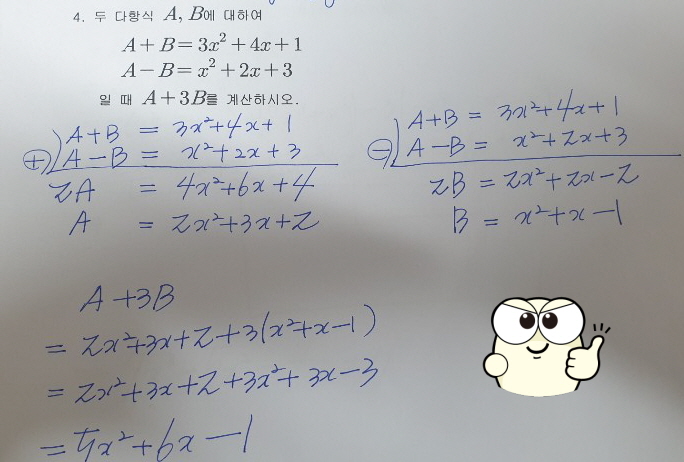 4. 두 다항식 A, B에 대하여
A+B=3x²+4x+1
A-B=x²+2x+3
일 때 A+3B를 계산하시오.
A+B = 3x²+4x+1
⊕ A-B = x²+2x+3
2A = 4x²+6x+4
A = 2x²+3x+2
A+B = 3x²+4x+1
⊖ A-B = x²+2x+3
2B = 2x²+2x-2
B = x²+x-1
A+3B
= 2x²+3x+2+3(x²+x-1)
= 2x²+3x+2+3x²+3x-3
= 5x²+6x-1